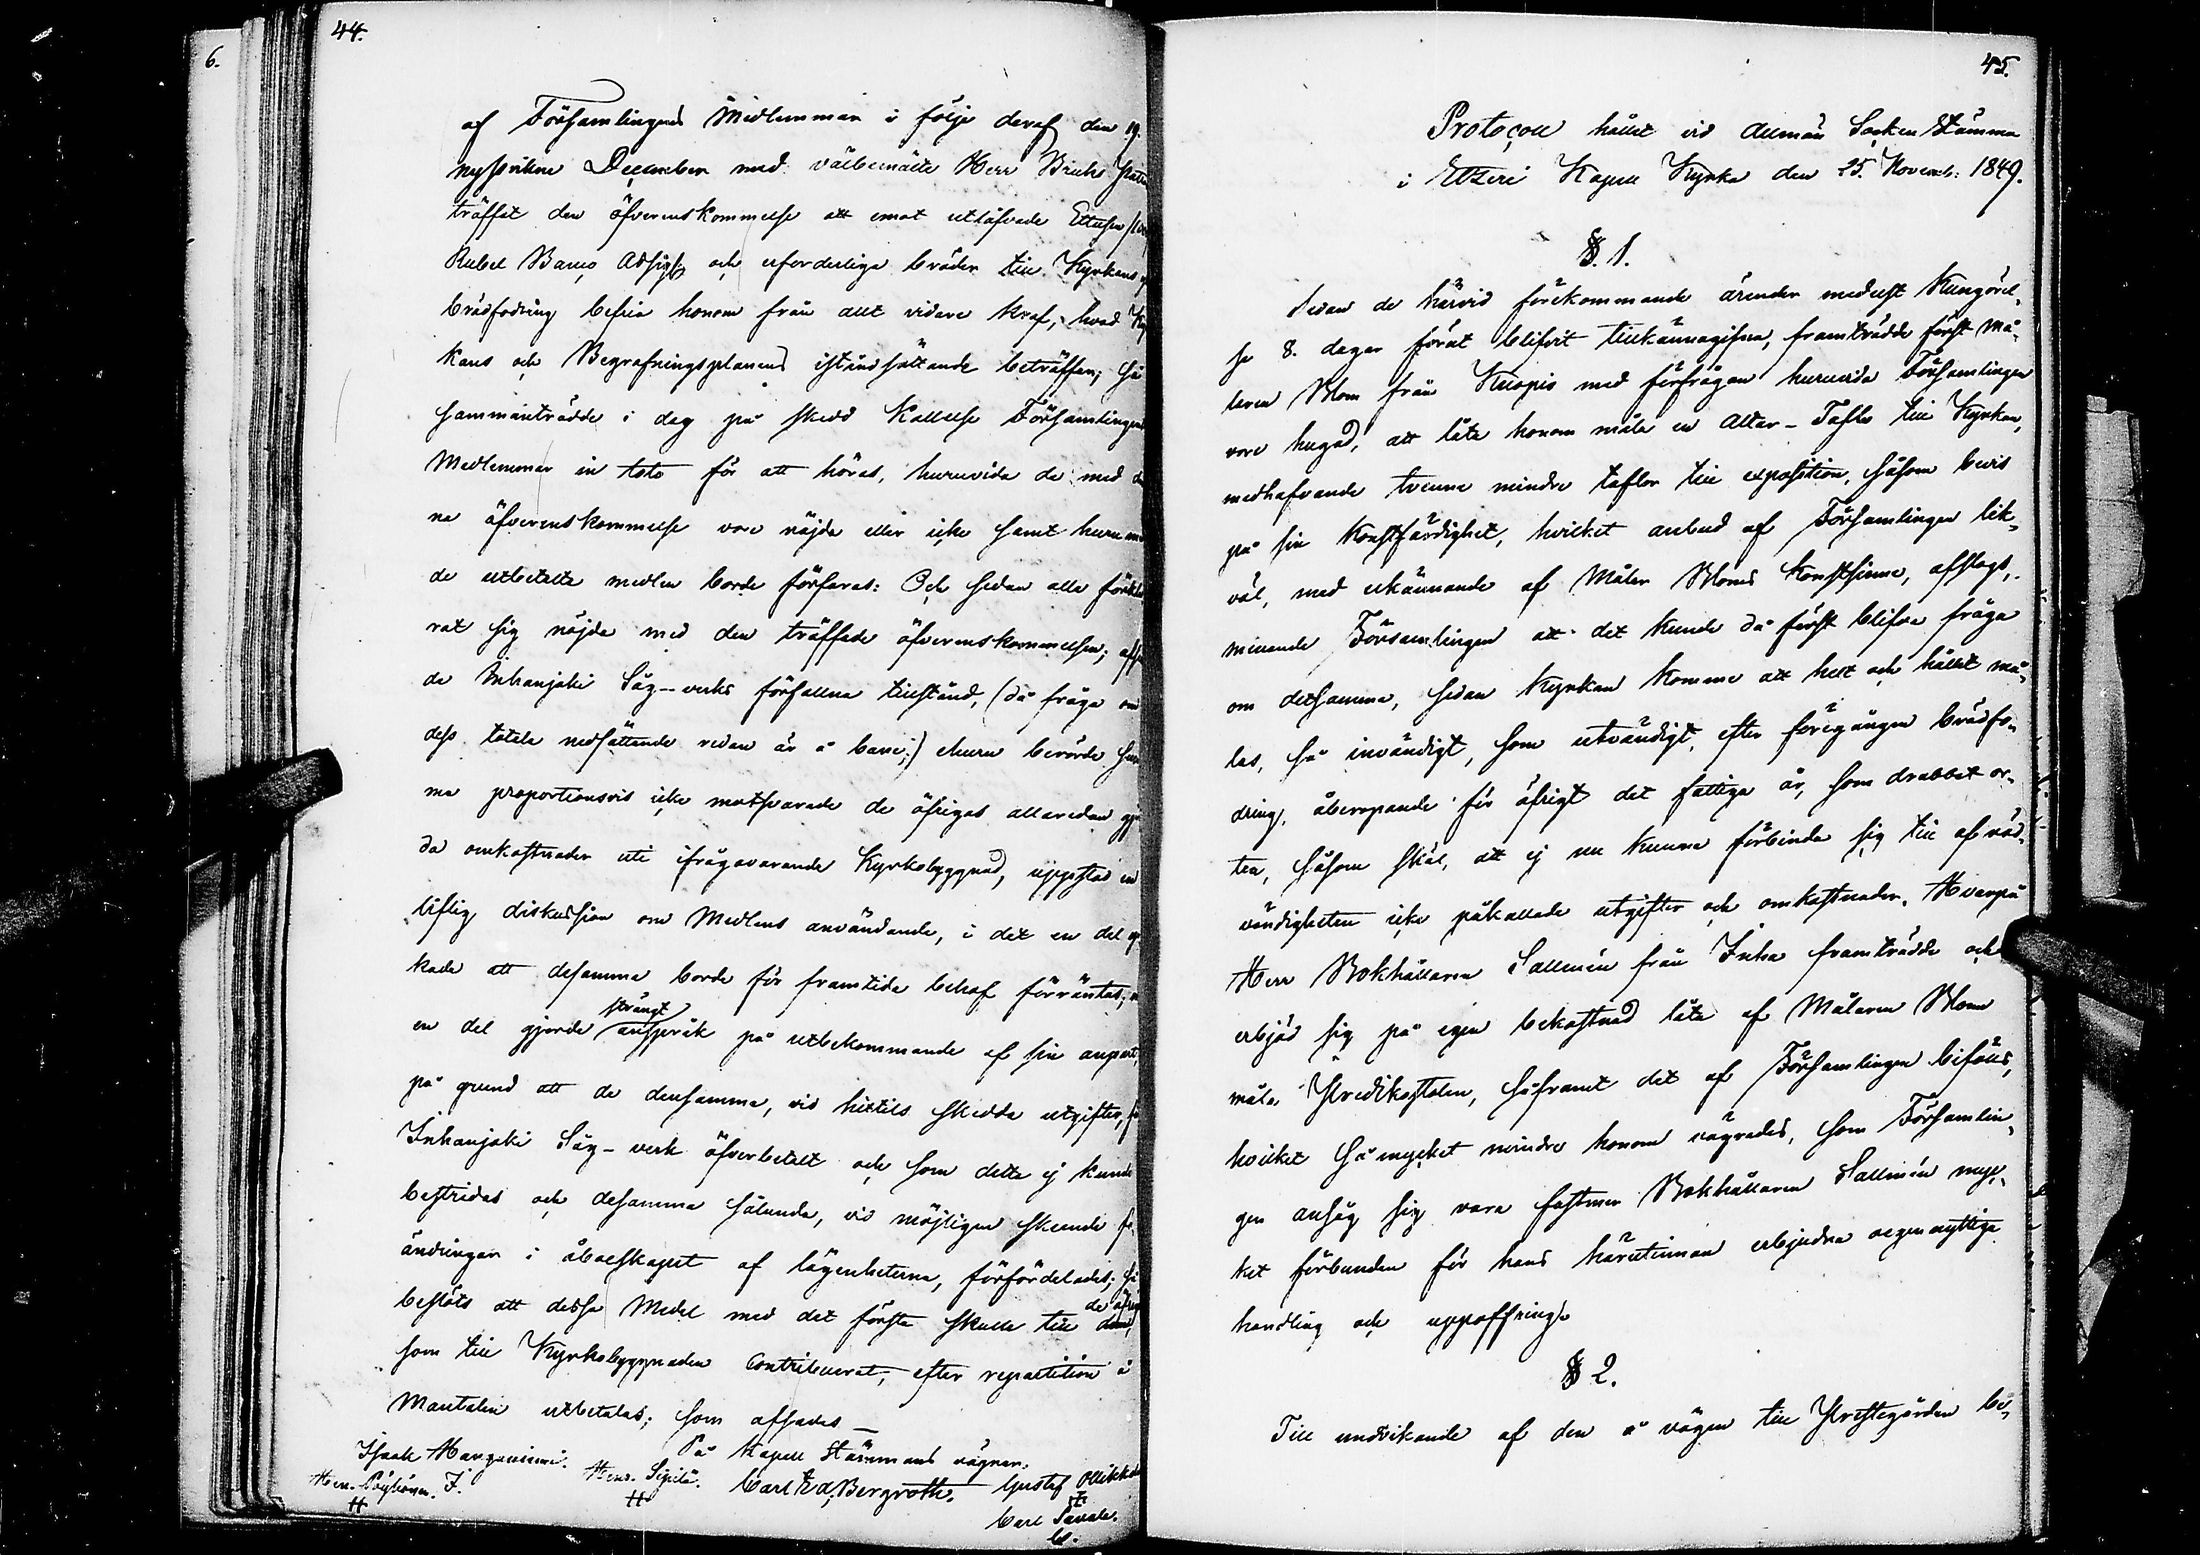 6.
44.
af Församlingens Medlemmar i följe deraf den 19.
nyssvikne December med välbemälte Herr Bruks
träffat den öfverenskommelse att emot utlåfvade
Rubel Banco Assign: och erforderliga bräder till Kyrkans
brädfodring befria honom från allt vidare kraf, hvad Kyr
kans och Begrafningsplanens iståndsättande beträffar; så
sammanträdde i dag på skedd kallelse Församlingens
Medlemmar in toto för att höras, huruvida de med den
na öfverenskommelse vore nöjda eller icke samt huru med
de utbetalta medlen borde förfaras: Och sedan alla förkla
rat sig nöjda med den träffade öfverenskommelsen;
de Inhanjoki Såg-verks förfallna tillstånd, (då fråga om
dess totala nedsättande redan är å bane;) ehuru berörde sum
ma proportionsvis icke motsvarade de öfrigas allaredan gjor
da omkostnader uti ifrågavarande Kyrkobyggnad, uppstod en
liflig diskussion om Medlens användande, i det en del
kade att desamma borde för framtida behof förräntas;
strängt
en del gjorde anspråk på utbekommande af sin anpart,
på grund att de densamma, vid hittils skedda utgifter,
Inhanjoki Såg-verk öfverbetalt och som detta ej kunde
bestridas och desamma sålunda, vid möjligen skeende för
ändringar i åboeskapet af lägenheterna, förfördelades; så
de öfrige
beslöts att dessa Medel med det första skulle till dem,
som till Kyrkobyggnaden contribuerat, efter repartition å
Mantalen utbetalas; som afsades
På Kapell Stämmans vägnar,
Isaak Manganiemi. Henr. Sipilä. Carl Ed. Bergroth. Gustaf Ollikkala
Hen. Pöyhönen. I.
H
H
Carl Pavala.
C.
45.
Protocoll hållet vid allmän Socken Stämma
i Etzeri Kapell Kyrka den 25. Novemb: 1849.
§. 1.
Sedan de härvid förekommande ärender medelst Kungörel-
se 8. dagar förut blifvit tillkännagifna, framträdde först Må-
laren Blom från Kuopio med förfrågan huruvida Församlingen
vore hugad, att låta honom måla en Altar-Tafla till Kyrkan,
medhafvande tvenne mindre taflor till exposition, såsom bevis
på sin Konstfärdighet, hvilket anbud af Församlingen lik-
väl, med erkännande af Målar Bloms Konstsinne, afslogs,
menande Församlingen att det kunde då först blifva fråga
om detsamma, sedan Kyrkan komme att helt och hållet må-
las, så invändigt, som utvändigt, efter föregången brädfo-
dring, åberopande för öfrigt det fattiga år, som drabbat or-
ten, såsom skäl, att ej nu kunna förbinda sig till af nöd-
vändigheten icke påkallade utgifter och omkostnader. Hvarpå
Herr Bokhållaren Sallmén från Inha framträdde och
erbjöd sig på egen bekostnad låta af Målaren Blom
måla Predikostolen, såframt det af Församlingen bifölls,
hvilket så mycket mindre honom vägrades, som Församlin-
gen ansåg sig vara fastmer Bokhållaren Sallmén myc-
ket förbunden för hans härutinnan erbjudna oegennyttiga
handling och uppoffring.
§ 2.
Till undvikande af den å vägen till Prestegården be-